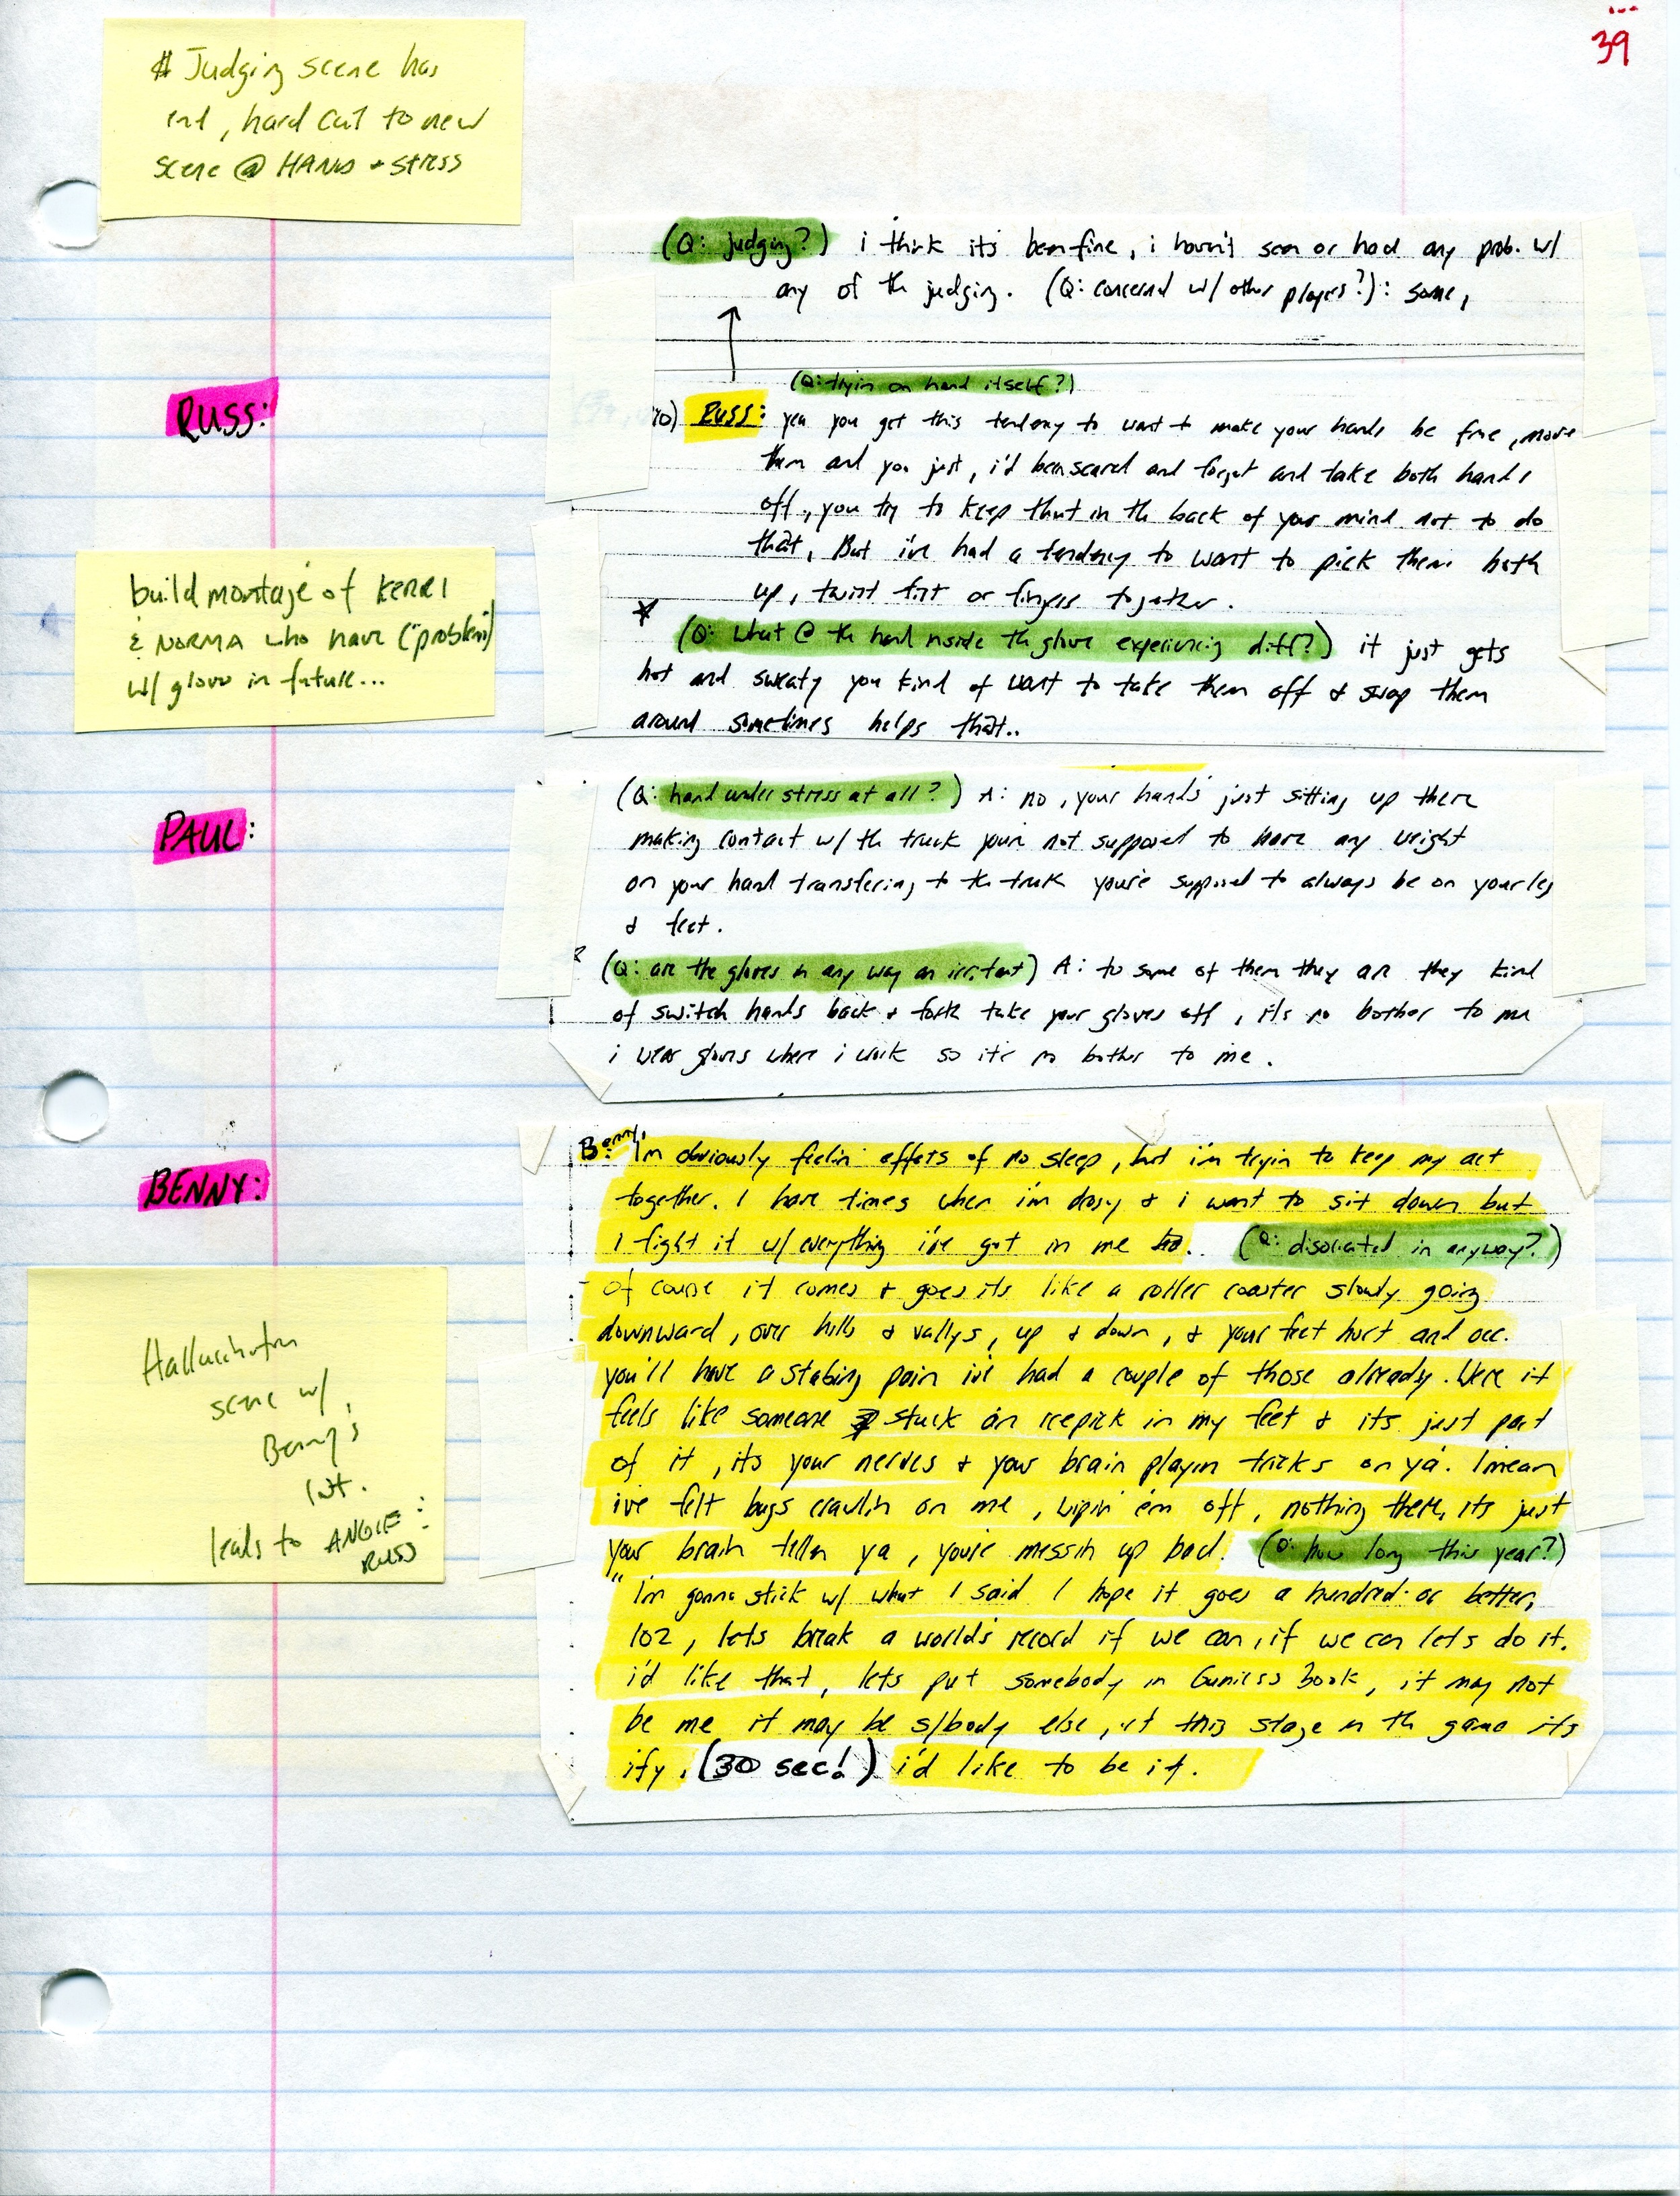 39
# Judging scene has
int, hard cut to new
scene @ HANDS + stress
(Q: judging?) i think its been fine, i havn't seen or had any prob. w/
any of th judging. (Q: concerned w/ other players?): some,
RUSS:
(Q: tryin on hand itself?)
RUSS: yea you get this tendency to want t make your hands be free, move
them and you just, i'd been scared and forget and take both hands
off, you try to keep that in th back of your mind not to do
that, But i've had a tendency to want to pick them both
up, twist fist or fingers together.
build montage of KERRI
& NORMA who have (problem)
w/ glove in future...
(Q: What @ th hand inside th glove experiencing diff?) it just gets
hot and sweaty you kind of want to take them off & swap them
around sometimes helps that..
PAUL:
(Q: hand under stress at all?) A: no, your hands just sitting up there
making contact w/ th truck your not supposed to have any weight
on your hand transfering to th truck you're supposed to always be on your leg
& feet.
(Q: are the gloves in any way an irritant) A: to some of them they are they kind
of switch hands back & forth take your gloves off, its no bother to me
i wear gloves where i work so it's no bother to me.
BENNY:
Benny: Im obviously feelin effects of no sleep, but i'm tryin to keep my act
together. I have times when i'm dosy & i want to sit down but
I fight it w/ everything i've got in me. (Q: disoriented in anyway?)
of course it comes & goes its like a roller coaster slowly going
downward, over hills & vallys, up & down, & your feet hurt and occ.
you'll have a stabing pain i've had a couple of those already. Were it
feels like someone stuck an icepick in my feet & its just part
of it, its your nerves & your brain playin tricks on ya. I mean
ive felt bugs crawlin on me, wipin' em off, nothing there, its just
your brain tellin ya, you're messin up bad. (Q: how long this year?)
"Im gonna stick w/ what I said I hope it goes a hundred or better,
102, lets break a worlds record if we can, if we can lets do it.
i'd like that, lets put somebody in Guniess Book, it may not
be me it may be s/body else, at this stage in th game its
ify. (30 sec!) i'd like to be it.
Hallucination
scene w/
Benny's
int.
leads to ANGIE:
RUSS